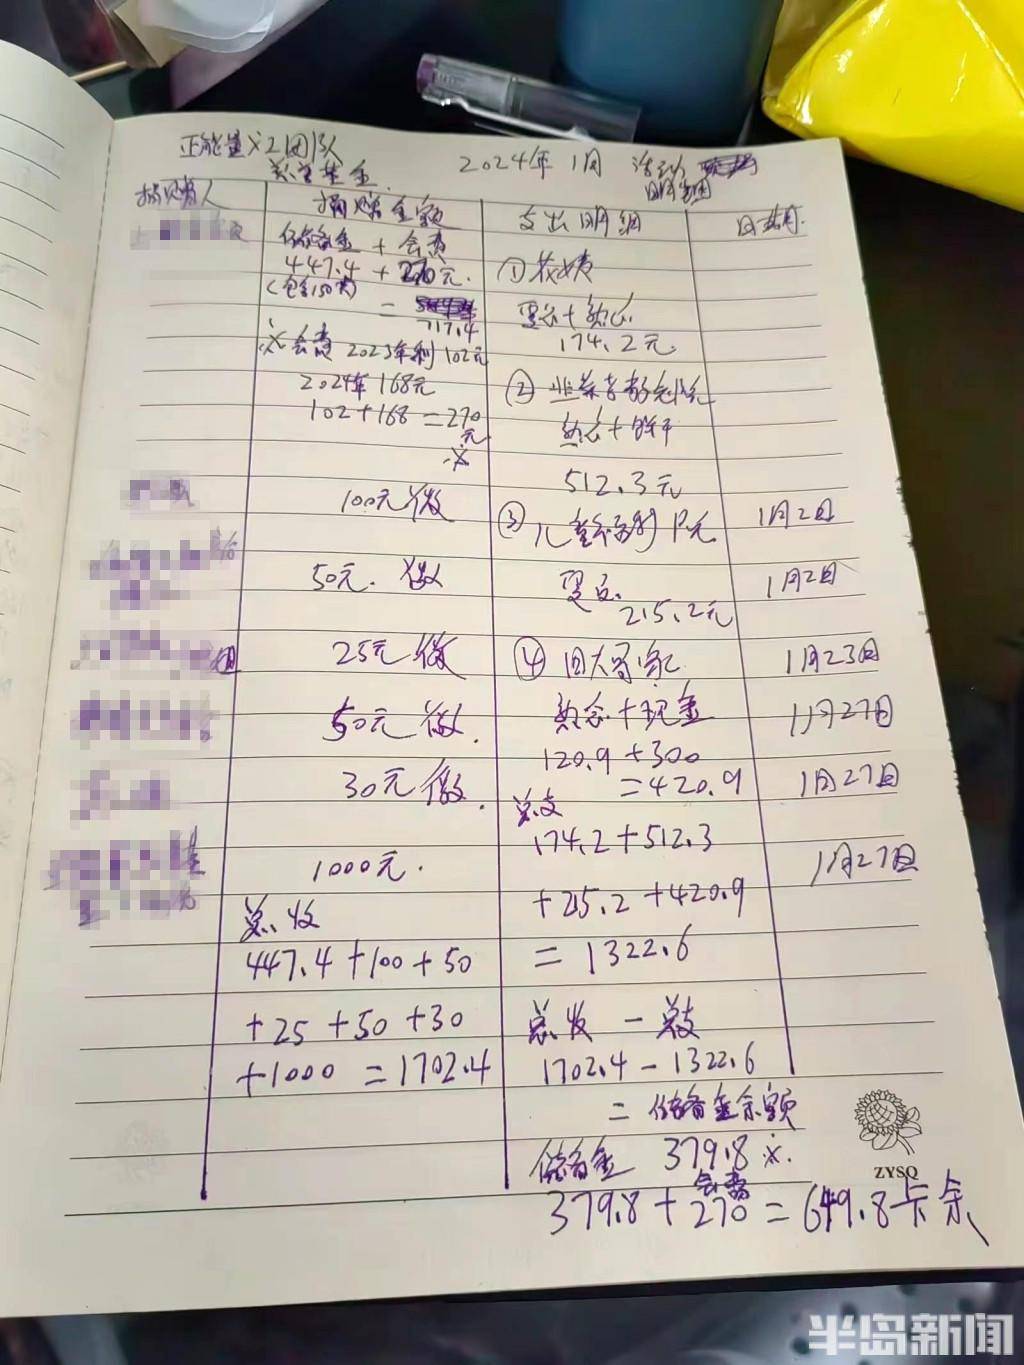 正能量义工团队
2024年1月 活动
明细
慈善基金.
捐赠人
捐赠金额
支出明细
日期.
储备金 + 会费
447.4 + 270元.
(包含150元)
=
717.4
※会费 2023年剩102元
2024年168元
102+168=270
元
※
100元 微
50元. 微
25元 微
50元 微.
30元 微.
1000元.
总收
447.4 +100 +50
+25 +50 +30
+1000 =1702.4
①
174.2元
②
512.3元
③
215.2元
④
+现金
120.9 +300
=420.9
总支
174.2+512.3
+215.2 +420.9
= 1322.6
总收 - 总支
1702.4 - 1322.6
= 储备金余额
储备金 379.8 ※.
会费
379.8 + 270 = 649.8 卡余
1月2日
1月2日
1月23日
1月27日
1月27日
1月27日
ZYSQ
半岛新闻